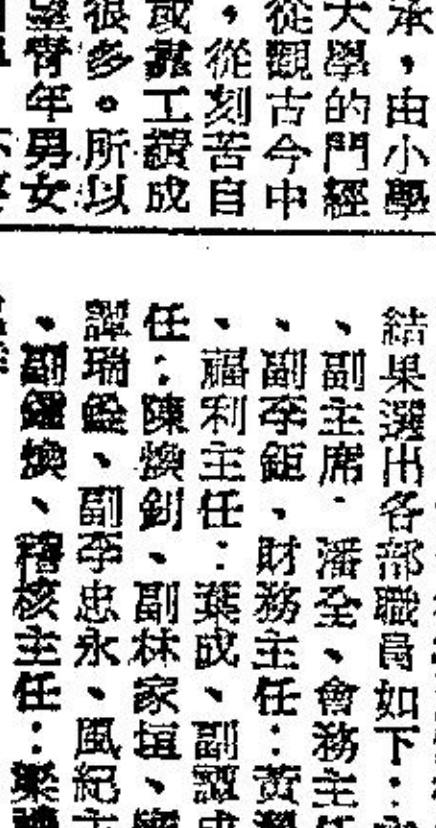 承，由小學
大學的門經
從觀古今中
，從刻苦自
或靠工讀成
很多。所以
青年男女
結果選出各部職員如下：
、副主席：潘全、會務主任
、副李鉅、財務主任：黃
、福利主任：葉成、副譚成
任：陳煥釗、副林家垣、
譚瑞、副李忠永、風紀主
、副煥、稽核主任：梁